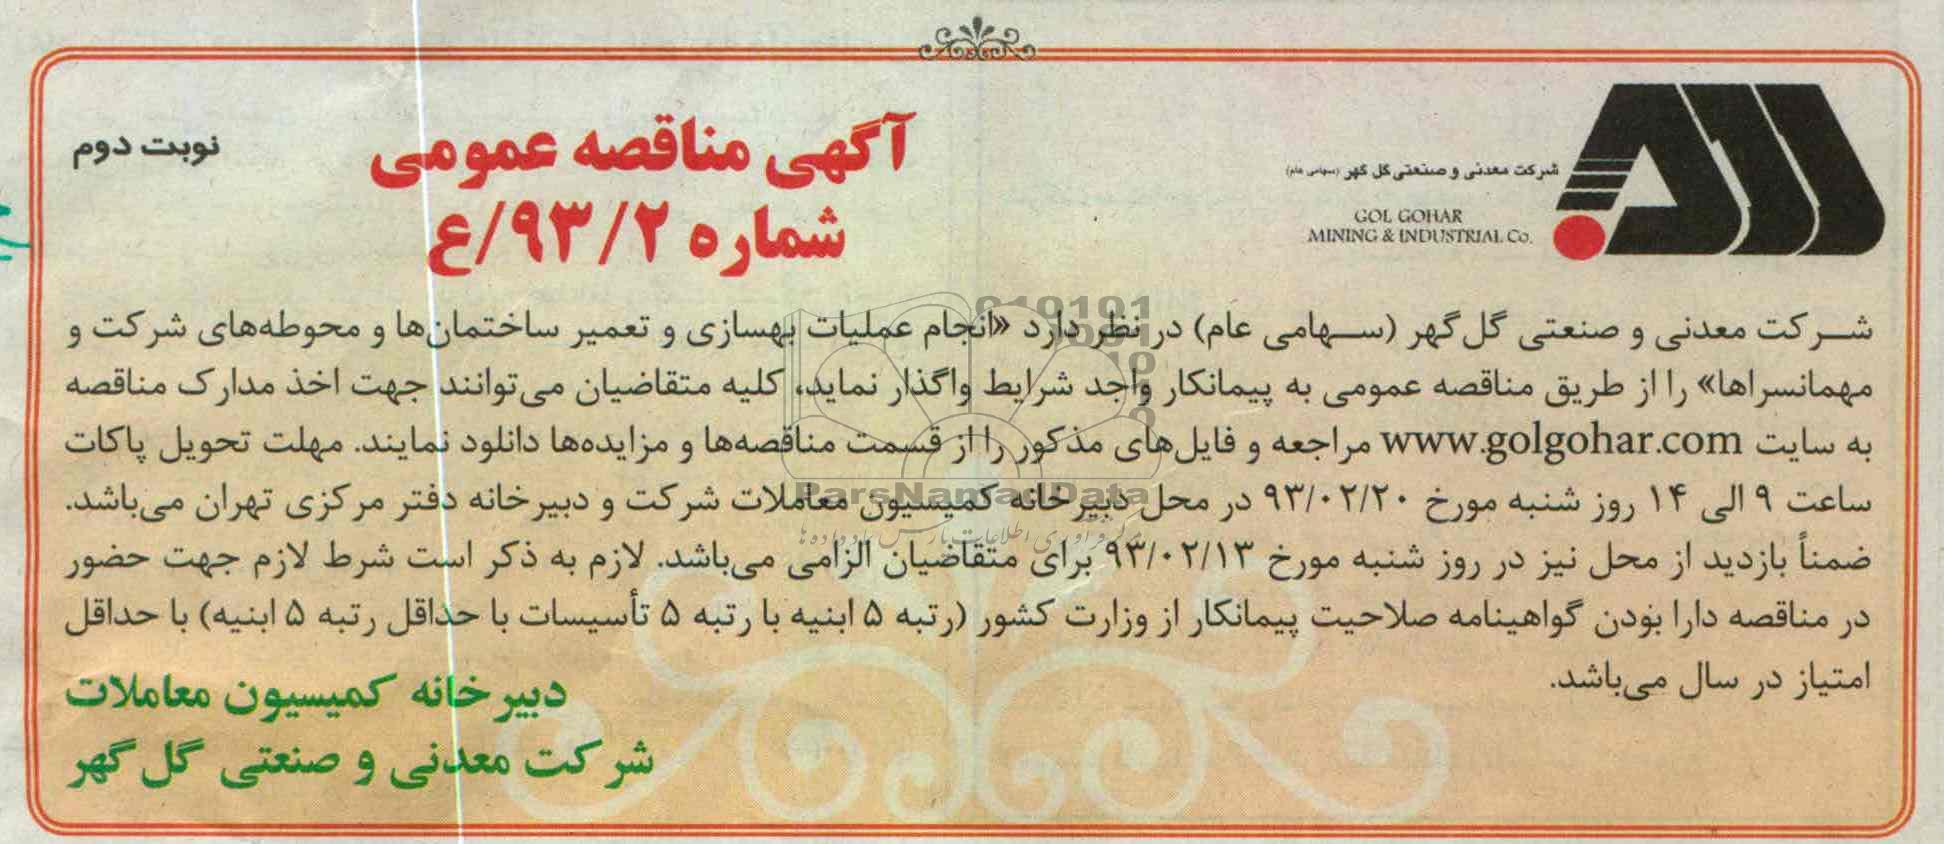 شرکت معدنی و صنعتی گل گهر (سهامی عام)
GOL GOHAR
MINING & INDUSTRIAL Co.
آگهی مناقصه عمومی
شماره ۹۳/۲/ع
نوبت دوم
شرکت معدنی و صنعتی گل‌گهر (سهامی عام) در نظر دارد «انجام عملیات بهسازی و تعمیر ساختمان‌ها و محوطه‌های شرکت و
مهمانسراها» را از طریق مناقصه عمومی به پیمانکار واجد شرایط واگذار نماید، کلیه متقاضیان می‌توانند جهت اخذ مدارک مناقصه
به سایت www.golgohar.com مراجعه و فایل‌های مذکور را از قسمت مناقصه‌ها و مزایده‌ها دانلود نمایند. مهلت تحویل پاکات
ساعت ۹ الی ۱۴ روز شنبه مورخ ۹۳/۰۲/۲۰ در محل دبیرخانه کمیسیون معاملات شرکت و دبیرخانه دفتر مرکزی تهران می‌باشد.
ضمناً بازدید از محل نیز در روز شنبه مورخ ۹۳/۰۲/۱۳ برای متقاضیان الزامی می‌باشد. لازم به ذکر است شرط لازم جهت حضور
در مناقصه دارا بودن گواهینامه صلاحیت پیمانکار از وزارت کشور (رتبه ۵ ابنیه با رتبه ۵ تأسیسات با حداقل رتبه ۵ ابنیه) با حداقل
امتیاز در سال می‌باشد.
دبیرخانه کمیسیون معاملات
شرکت معدنی و صنعتی گل گهر
ParsNamadData